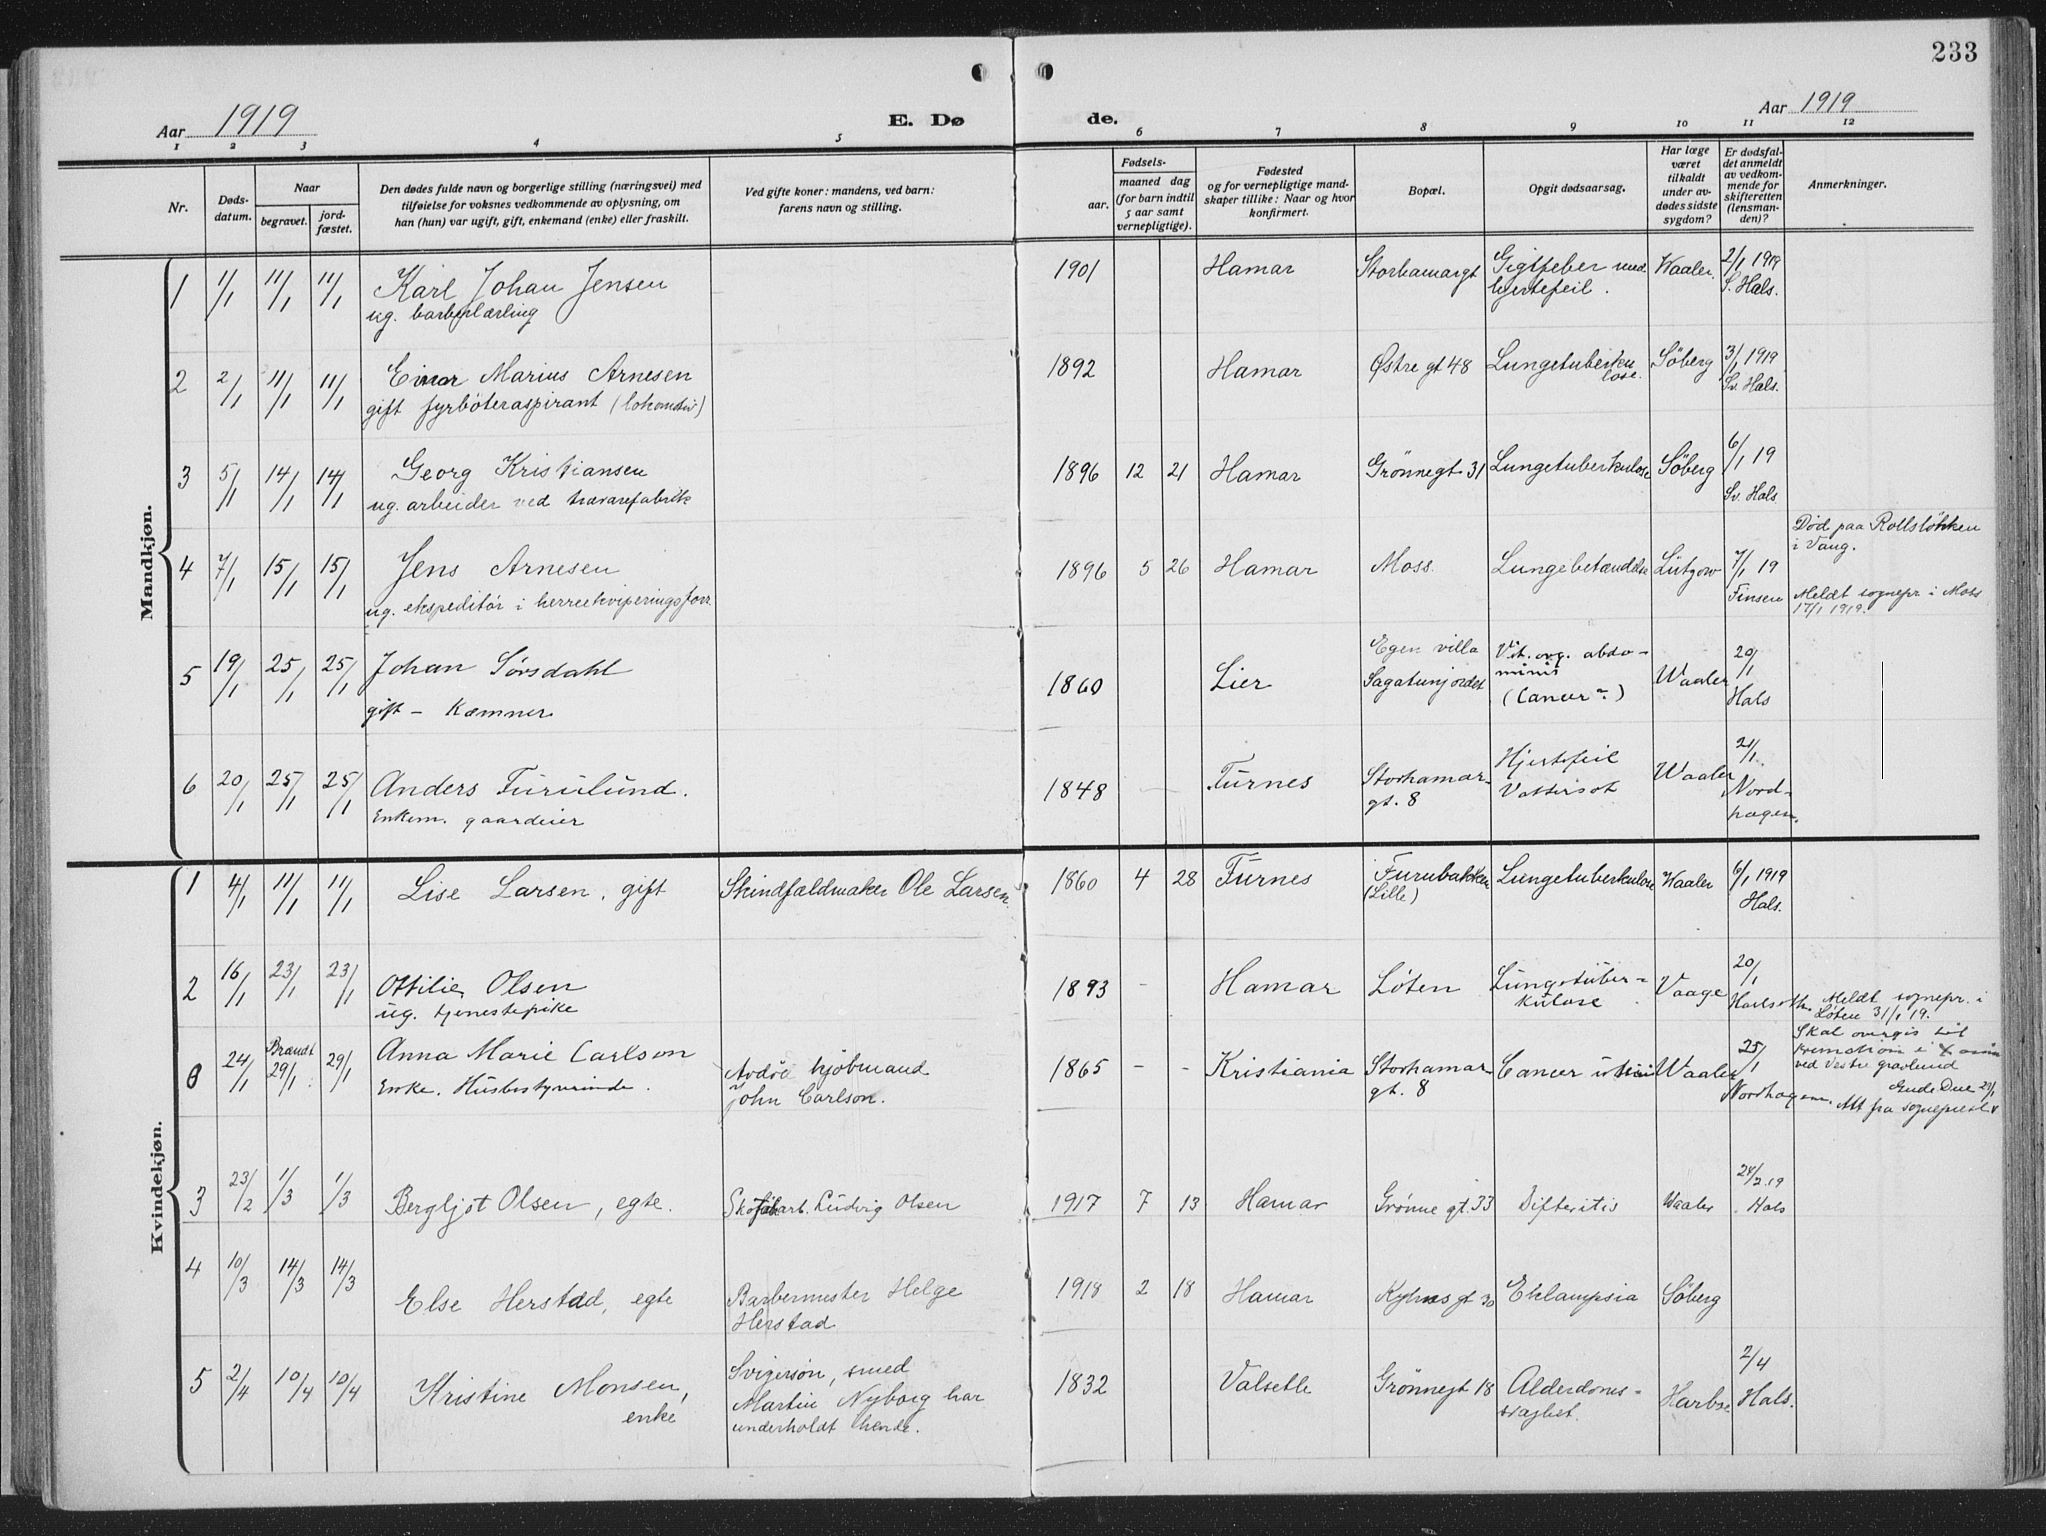 233
Aar 1919
E. Dø
de.
Aar 1919
1 2 3 4 5 6 7 8 9 10 11 12
Nr.
Døds-
datum.
Naar
begravet.
jord-
fæstet.
Den dødes fulde navn og borgerlige stilling (næringsvei) med
tilføielse for voksnes vedkommende av oplysning, om
han (hun) var ugift, gift, enkemand (enke) eller fraskilt.
Ved gifte koner: mandens, ved barn:
farens navn og stilling.
Fødsels-
aar.
maaned dag
(for barn indtil
5 aar samt
vernepligtige).
Fødested
og for vernepligtige mand-
skaper tillike: Naar og hvor
konfirmert.
Bopæl.
Opgit dødsaarsag.
Har læge
været
tilkaldt
under av-
dødes sidste
sygdom?
Er dødsfal-
det anmeldt
av vedkom-
mende for
skifteretten
(lensman-
den)?
Anmerkninger.
Mandkjøn.
1 1/1 11/1 11/1 Karl Johan Jensen
ug. barberlærling
1901 Hamar Storhamargt Gigtfeber med
hjertefeil. Waaler. 2/1 1919
S. Hals.
2 2/1 11/1 11/1 Einar Marius Arnesen
gift fyrbøteraspirant (lokomotiv)
1892 Hamar Østre gt 48 Lungetuberku
lose. Søberg 3/1 1919
Sv. Hals.
3 5/1 14/1 14/1 Georg Kristiansen
ug. arbeider ved trævarefabrik
1896 12 21 Hamar Grønnegt 31 Lungetuberkulose Søberg 6/1 19
Sv. Hals
4 7/1 15/1 15/1 Jens Arnesen
ug. ekspeditør i herreekviperingsforr.
1896 5 26 Hamar Moss. Lungebetændelse Lützow 7/1 19
Finsen
Død paa Rollsløkken
i Vang.
Meldt sognepr. i Moss
17/1 1919.
5 19/1 25/1 25/1 Johan Sørsdahl
gift - kæmner
1860 Lier Egen villa
Sagatunjordet Vit. org. abdo-
minis
(Cancer?) Waaler 20/1
Hals
6 20/1 25/1 25/1 Anders Furulund.
Enkem. gaardeier
1848 Furnes Storhamar-
gt. 8 Hjertefeil
Vattersot Waaler 21/1.
Nord-
hagen.
Kvindekjøn.
1 4/1 11/1 11/1 Lise Larsen, gift Skindfældmaker Ole Larsen.
1860 4 28 Furnes Furubakken
(Lille) Lungetuberkulose Waaler 6/1 1919
Hals.
2 16/1 23/1 23/1 Ottilie Olsen
ug. tjenestepike
1893 - Hamar Løten Lungetuber-
kulose Vaage 20/1
Meldt sognepr. i
Løten 31/1 19.
24/1 Brandt
29/1 29/1 Anna Marie Carlson
Enke. Husbestyrerinde.
Avdøe kjøbmand
John Carlson.
1865 - - Kristiania Storhamar-
gt. 8 Cancer Waaler 25/1
Nordhagen.
Skal overgis til
kremation i
ved Vestre gravlund
Att fra sogneprest
3 23/2 1/3 1/3 Bergljot Olsen, egte. Skofabarb. Ludvig Olsen
1917 7 13 Hamar Grønne gt. 33 Difteritis Waaler 24/2.19
Hals
4 10/3 14/3 14/3 Else Herstad, egte Barbermester Helge
Herstad
1918 2 18 Hamar gt 30 Eklampsia Søberg
5 2/4 10/4 10/4 Kristine Monsen,
enke
Svigersøn, smed
Martin Nyborg har
underholdt hende.
1832 Valsetle Grønnegt 18 Alderdoms-
svaghet. 2/4
Hals.